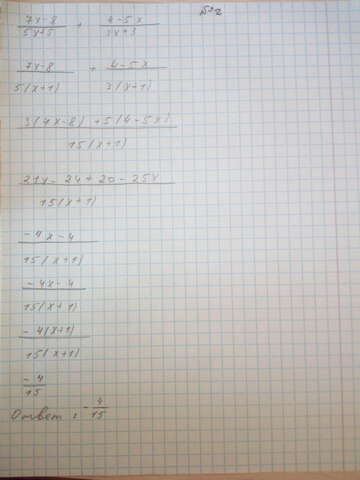 №2
(7x-8)/(5x+5) + (4-5x)/(3x+3)
(7x-8)/(5(x+1)) + (4-5x)/(3(x+1))
(3(7x-8)+5(4-5x))/(15(x+1))
(21x-24+20-25x)/(15(x+1))
(-4x-4)/(15(x+1))
(-4x-4)/(15(x+1))
(-4(x+1))/(15(x+1))
-4/15
Ответ: -4/15